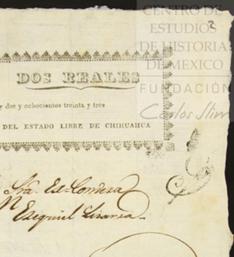 CENTRO DE
ESTUDIOS
DE HISTORIA
DE MEXICO
FUNDACIÓN
Carlos Slim
2
DOS REALES
y dos y ochocientos treinta y tres
DEL ESTADO LIBRE DE CHIHUAHUA
Ezequiel